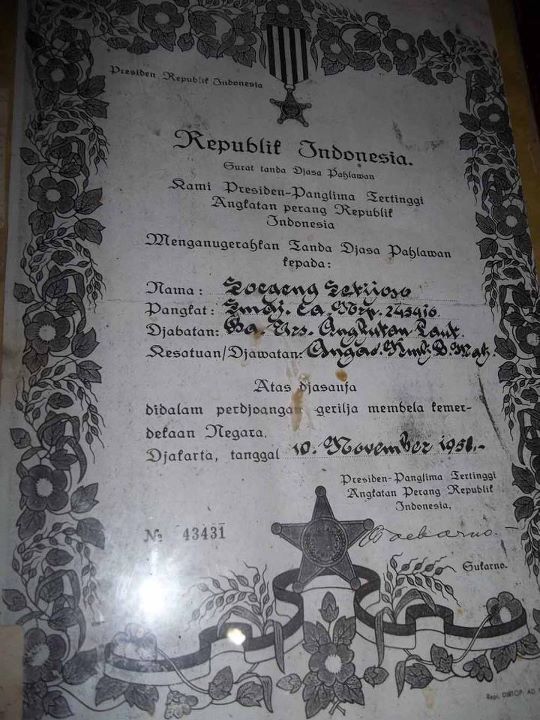 Presiden Republik Indonesia
Republik Indonesia.
Surat tanda Djasa Pahlawan
Kami Presiden-Panglima Tertinggi
Angkatan perang Republik
Indonesia
Menganugerahkan Tanda Djasa Pahlawan
kepada:
Nama : Soegeng
Pangkat :
Djabatan: Ba. Urs. Angkutan Laut.
Kesatuan/Djawatan:
Atas djasanja
didalam perdjoangan gerilja membela kemer-
dekaan Negara.
Djakarta, tanggal 10. November 1958.-
Presiden-Panglima Tertinggi
Angkatan Perang Republik
Indonesia,
№ 43431
Soekarno
Sukarno.